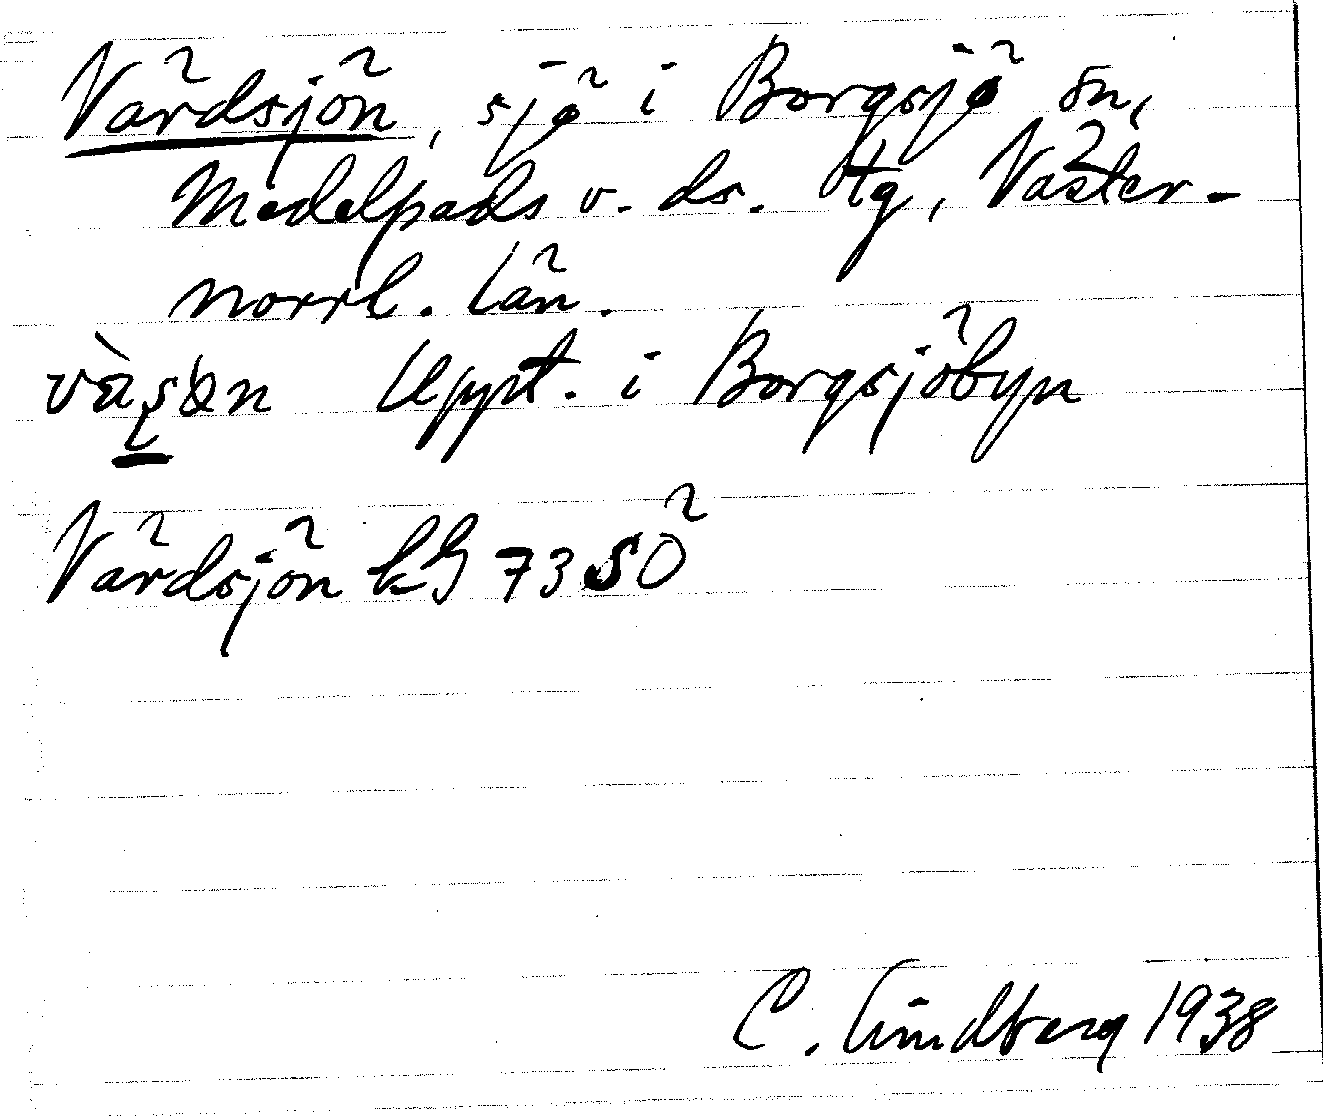 Värdsjön, sjö i Borgsjö sn,
Medelpads v. ds. tg, Väster-
norrl. län.
Uppt. i Borgsjöbyn
Värdsjön kg 73 SÖ
C. Lindberg 1938